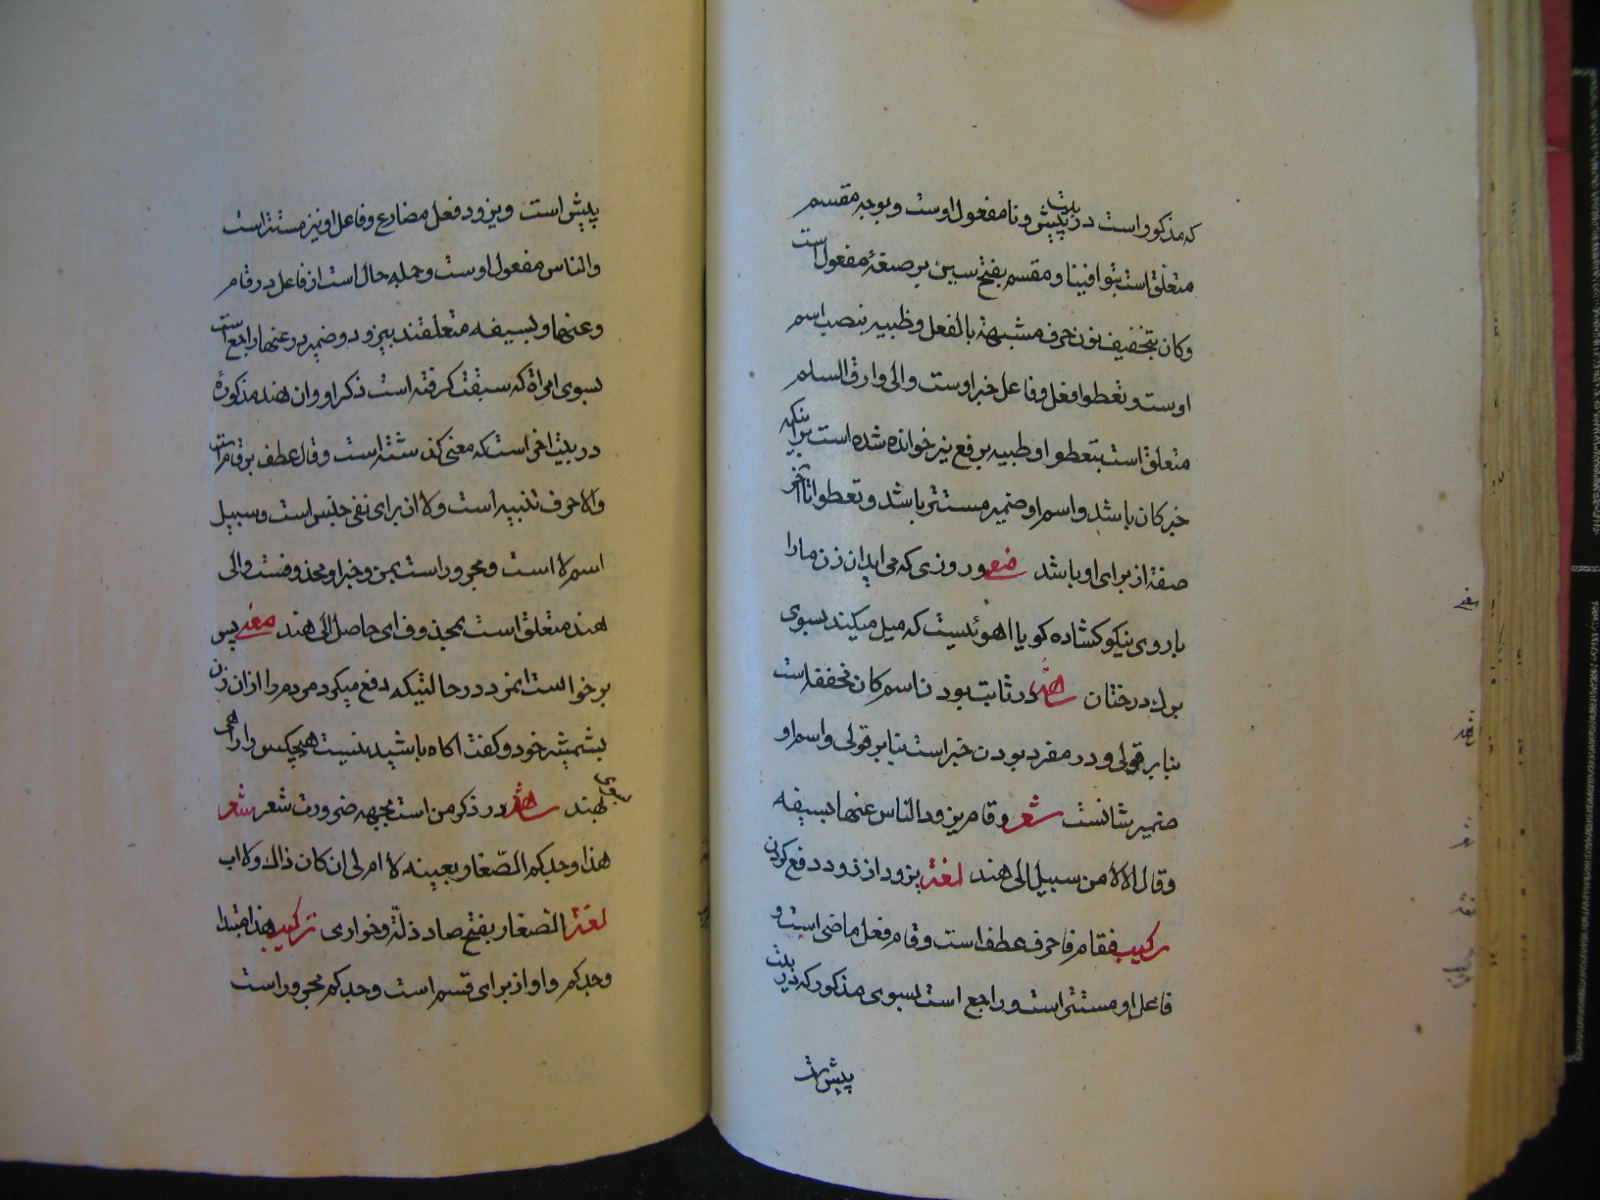 که مذکور است در بیت پیش و نا مفعول اوست و بوجه مقسم
متعلق است بتوافینا و مقسم بفتح سین بر صیغهٔ مفعول است
وکان بتخفیف نون حرف مشبهة بالفعل و ظبیه بنصب اسم
اوست و تعطوا فعل و فاعل خبر اوست والی وارق السلم
متعلق است بتعطوا و ظبیه برفع نیز خوانده شده است بنابرانکه
خبر کان باشد و اسم او ضمیر مستتر باشد و تعطوا تا آخر
صفة از برای او باشد معنی و روزی که می اید ان زن ما را
با روی نیکو کشاده کویا اهوئیست که میل میکند بسوی
برك درختان شاهد در ثابت بودن اسم کان مخففه است
بنابر قولی و در مفرد بودن خبر است بنابر قولی و اسم او
ضمیر شانست شعر و قام یزود الناس عنها بسیفه
وقال الا لا من سبیل الی هند لغة یزود از زود دفع کردن
ترکیب فقام فا حرف عطف است و قام فعل ماضی است و
فاعل او مستتر است و راجع است بسوی مذکور که در بیت
پیش است
پیش است و یزود فعل مضارع و فاعل او نیز مستتر است
والناس مفعول اوست و جمله حال است از فاعل در قام
و عنها و بسیفه متعلقند بیزود و ضمیر در عنها راجع است
بسوی امراة که سبقت کرفته است ذکر او و ان هند مذکورهٔ
در بیت اخر است که معنی کذشته است و قال عطف بر قام است
والا حرف تنبیه است ولا از برای نفی جنس است و سبیل
اسم لا است و مجرور است بمن و خبر او محذوفست والی
هند متعلق است بمحذوف ای حاصل الی هند معنی پس
برخواست ایمرد در حالتیکه دفع میکرد مردم را از ان زن
بشمشیر خود و کفت اکاه باشید نیست هیچکس را راهی
بسوی هند شاهد در ذکر من است بجهه ضرورت شعر شعر
هذا وجدکم الصغار بعینه لا ام لی ان کان ذاك ولا اب
لغة الصغار بفتح صاد ذلة و خواری ترکیب هذا مبتدا
وجدکم واو از برای قسم است وجدکم مجرور است